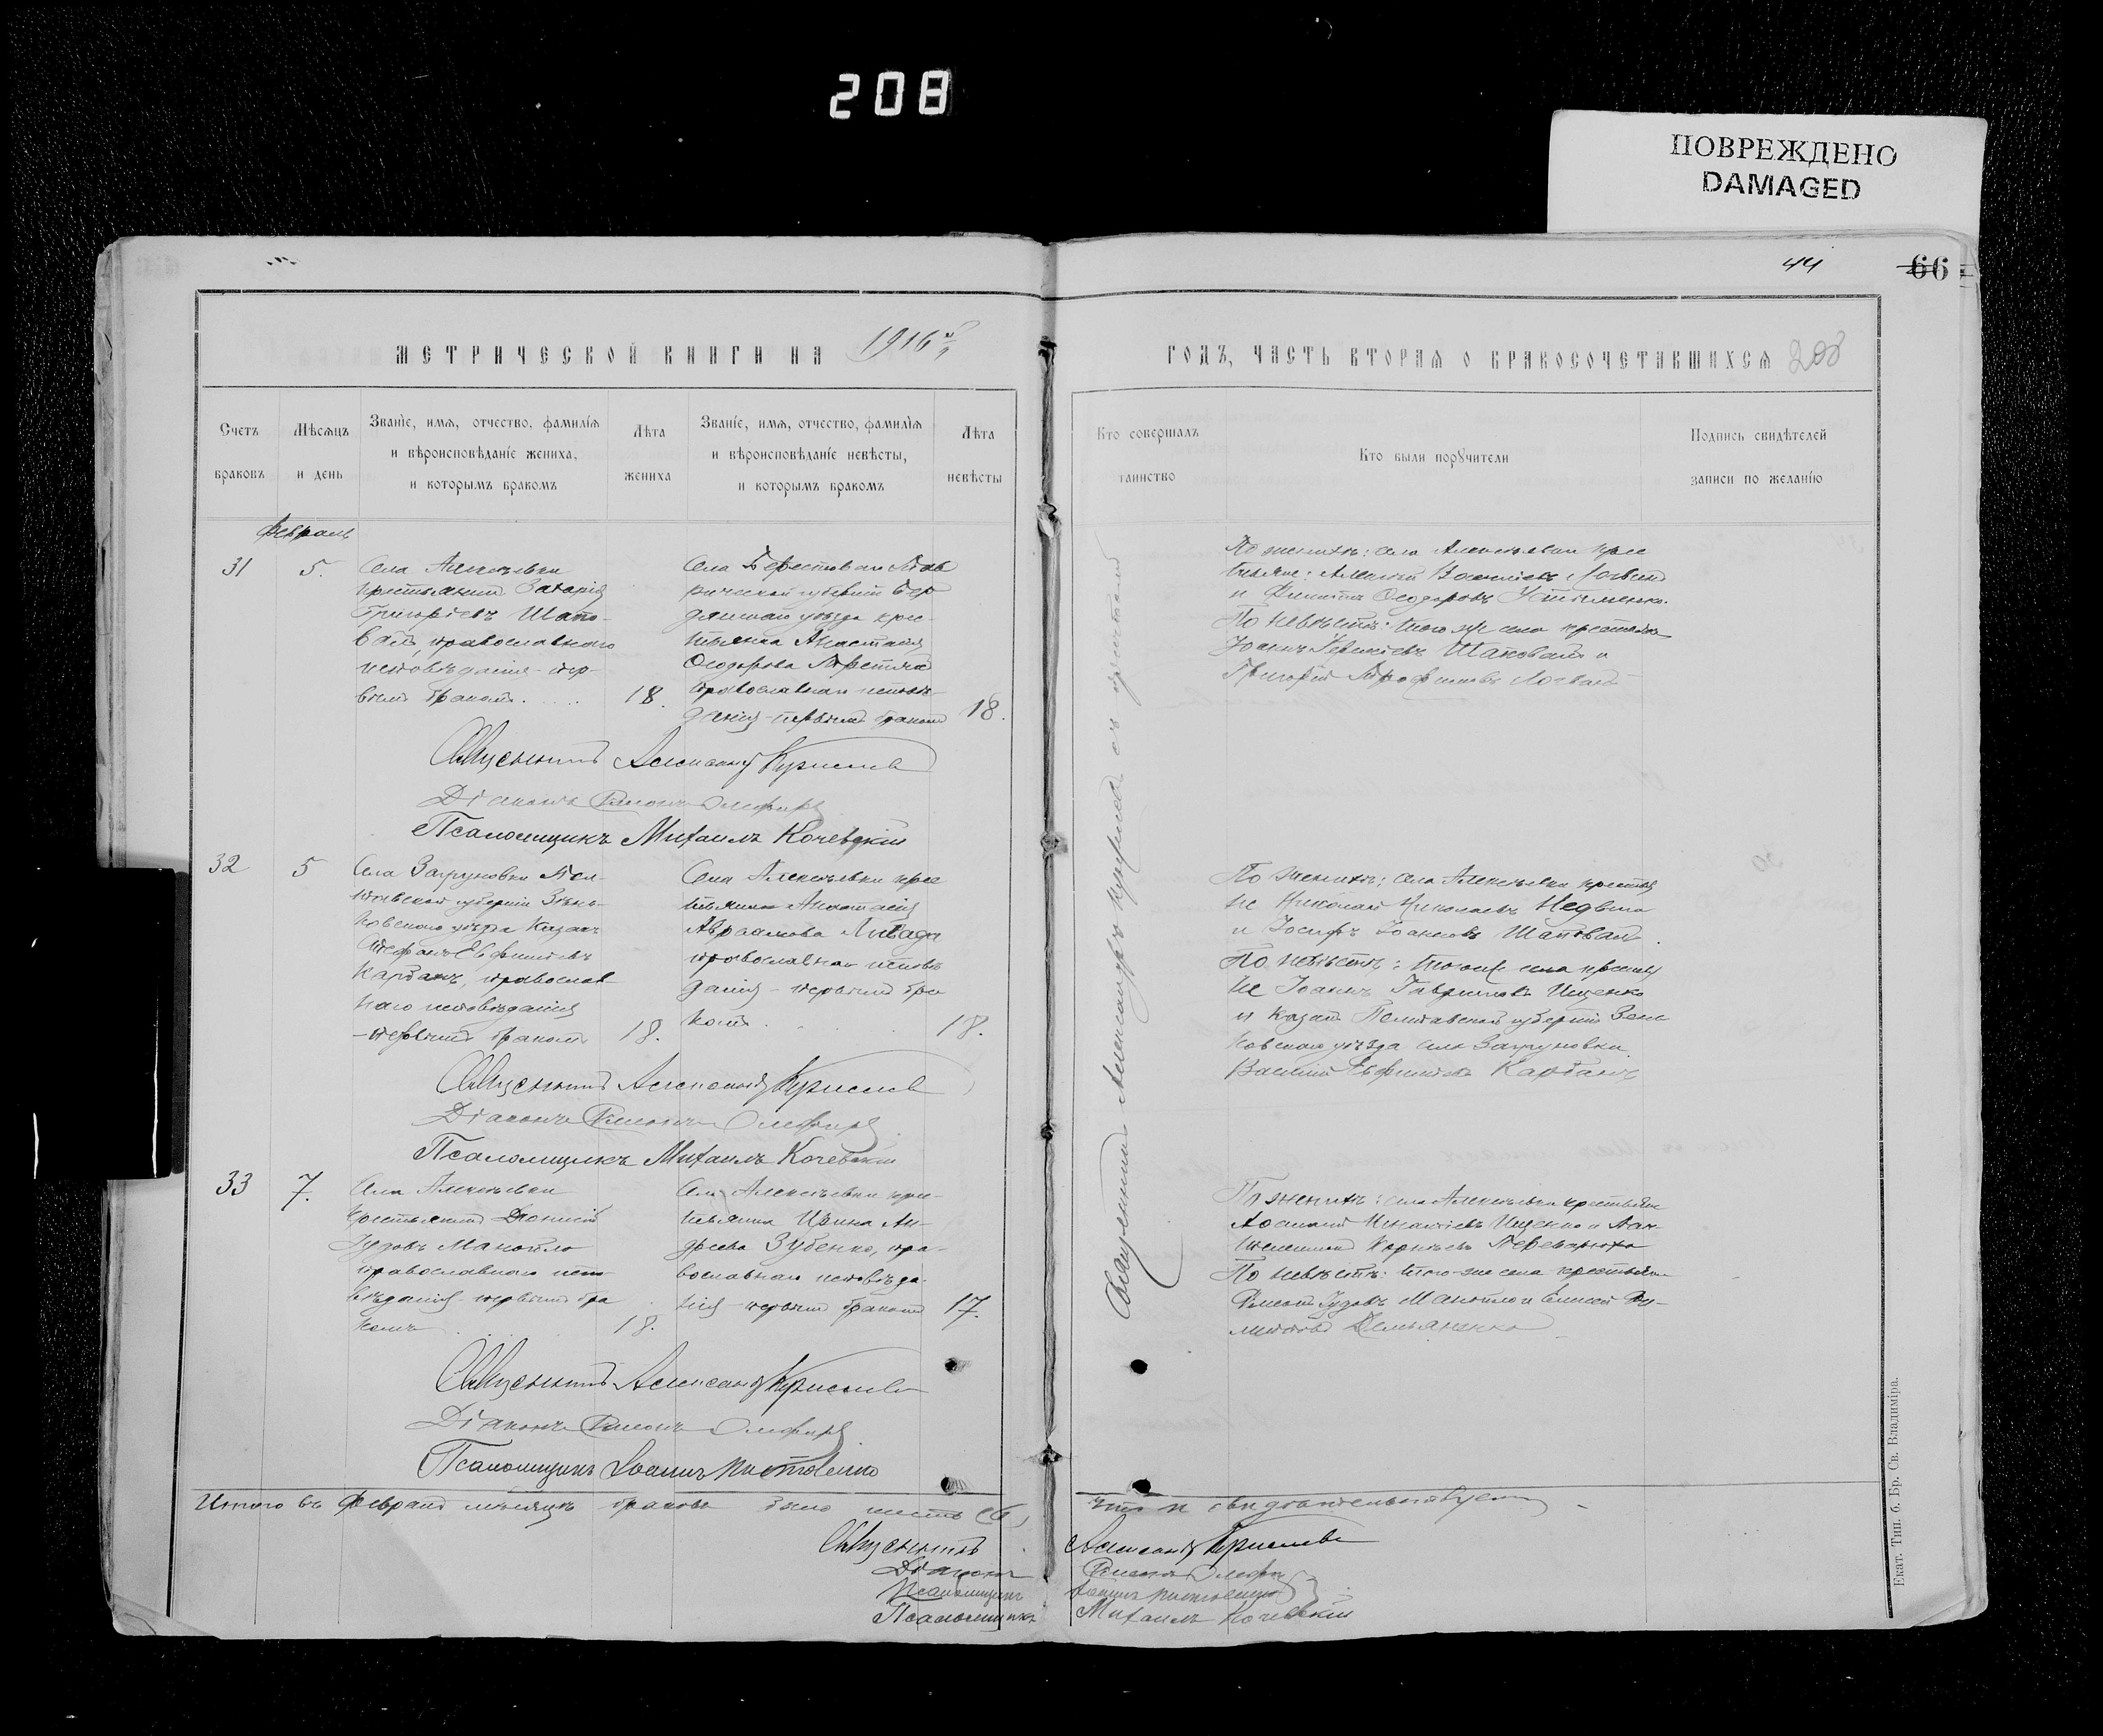 208
ПОВРЕЖДЕНО
DAMAGED
44
66
МЕТРИЧЕСКОЙ КНИГИ НА 1916й
ГОДЪ, ЧАСТЬ ВТОРАЯ О БРАКОСОЧЕТАВШИХСЯ 208
Счетъ
браковъ
Мѣсяцъ
и день
Званіе, имя, отчество, фамилія
и вѣроисповѣданіе жениха,
и которымъ бракомъ
Лѣта
жениха
Званіе, имя, отчество, фамилія
и вѣроисповѣданіе невѣсты,
и которымъ бракомъ
Лѣта
невѣсты
Кто совершалъ
таинство
Кто были поручители
Подпись свидѣтелей
записи по желанію
Февраль
31
5.
Села Алексѣевки
крестьянинъ Захарій
Григоріевъ Шапо-
валъ, православнаго
исповѣданія - пер-
вымъ бракомъ.
18.
Села Берестоваго Тав
рической губерніи Бер
дянскаго уѣзда крес-
тьянка Анастасія
Ѳеодорова
православнаго исповѣ-
данія - первымъ бракомъ
18.
По женихѣ: села Алексѣевки крес
тьяне: Алексій Василіевъ
и Ѳеодоровъ Устименко.
По невѣстѣ: того же села крестьяне
Іоаннъ Шаповалъ и
Григорій Трофимовъ
Священникъ Александръ
Діаконъ Симонъ
Псаломщикъ Михаилъ Кочевскій
32
5
Села Загруновки Пол-
тавской губерніи Зѣнь-
ковскаго уѣзда казакъ
Стефанъ Евфиміевъ
Карбанъ, православ
наго исповѣданія
- первымъ бракомъ
18.
Села Алексѣевки крес
тьянка Анастасія
Авраамова
православнаго исповѣ
данія - первымъ бра
комъ
18.
По женихѣ: села Алексѣевки крестья
не Николай Николаевъ
и Іосифъ Іоанновъ Шаповалъ.
По невѣстѣ: того же села крестья
не Іоаннъ Гавриловъ Ищенко
и казакъ Полтавской губерніи Зень
ковскаго уѣзда села Загруновки
Василій Евфиміевъ Карбанъ
Священникъ Александръ
Діаконъ Симонъ
Псаломщикъ Михаилъ Кочевскій
33
7.
Села Алексѣевки
крестьянинъ Діонисій
Іудовъ Манойло
православнаго испо-
вѣданія - первымъ бра
комъ
18.
Села Алексѣевки крес-
тьянка Ирина Ан-
дреева Зубенко, пра-
вославнаго исповѣда-
нія - первымъ бракомъ
17.
По женихѣ: села Алексѣевки крестьяне
Ищенко и Пан-
телеимонъ
По невѣстѣ: того-же села крестьяне
Симонъ Іудовъ Манойло и
Демьяненко
Священникъ Александръ
Діаконъ Симонъ
Псаломщикъ Іоаннъ
Священникъ Александръ
Итого въ Февралѣ мѣсяцѣ браковъ было шесть (6)
что и свидѣтельствуемъ
Священникъ Александръ
Діаконъ Симонъ
Псаломщикъ Іоаннъ
Псаломщикъ Михаилъ Кочевскій
Екат. Тип. б. Бр. Св. Владиміра.